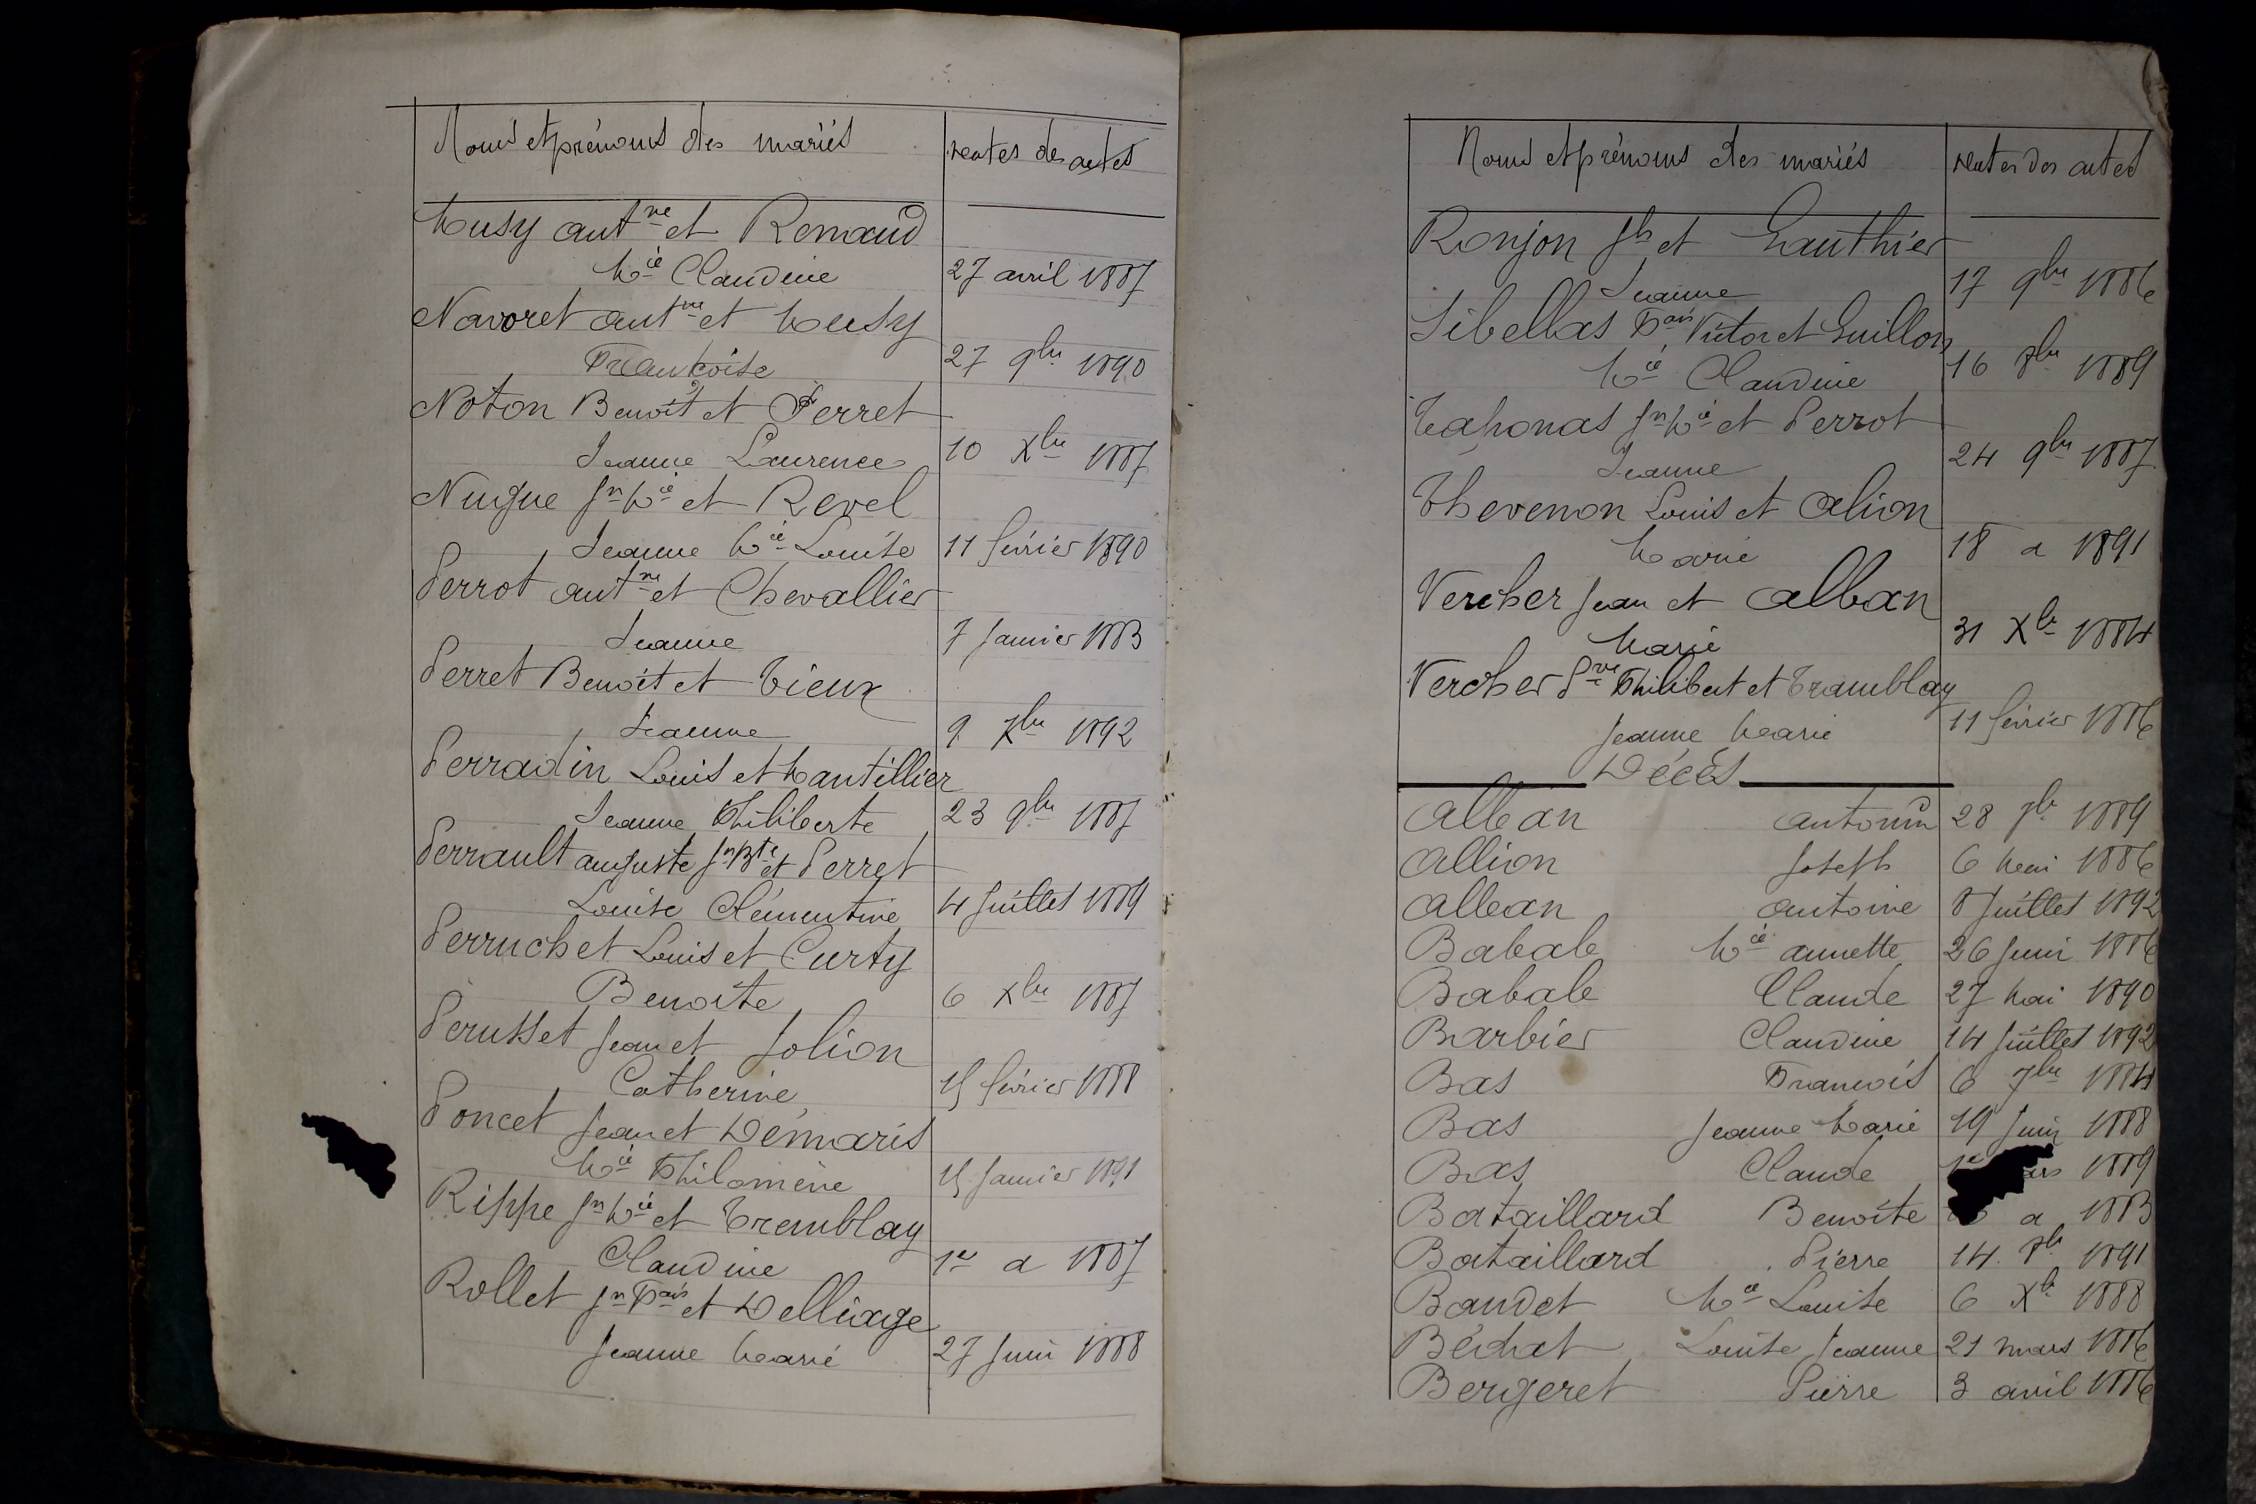 Noms et prénoms des mariés
Dates des actes
Musy antne et Renaud
Mie Claudine 27 avril 1887
Navoret antne et Musy
Françoise 27 9bre 1890
Noton Benoit et Perret
Jeanne Laurence 10 Xbre 1887
Nugue Jn Mie et Revel
Jeanne Mie Louise 11 février 1890
Perrot antne et Chevallier
Jeanne 7 Janvier 1883
Perret Benoit et Vieux
Jeanne 9 Xbre 1892
Perradin Louis et Mantillier
Jeanne Philiberte 23 9bre 1887
Perrault auguste Jn Bte et Perret
Louise Clémentine 4 Juillet 1889
Perruchet Louis et Curty
Benoite 6 Xbre 1887
Perusset Jean et Jolion
Catherine 15 février 1888
Poncet Jean et Démaris
Mie Philomène 15 Janvier 1891
Rippe Jn Mie et Tremblay
Claudine 1er a 1887
Rollet Jn Fois et Delliage
Jeanne Marie 27 Juin 1888
Noms et prénoms des mariés
Dates des actes
Ronjon Jh et Gauthier
Jeanne 17 9bre 1886
Sibellas Fois Victor et Guillon
Mie Claudine 16 8bre 1889
Tahonas Jn Mie et Perrot
Jeanne 24 9bre 1887
Thevenon Louis et alion
Marie 18 a 1891
Vercher Jean et alban
Marie 31 Xbre 1884
Vercher Pre Philibert et Tramblay
Jeanne Marie 11 février 1886
Décès
alban antonin 28 1889
allion Joseph 6 Mai 1886
alban antoine 8 Juillet 1892
Babab Mie annette 26 Juin 1886
Babab Claude 27 Mai 1890
Barbier Claudine 14 Juillet 1892
Bas François 6 7bre 1884
Bas Jeanne Marie 19 Juin 1888
Bas Claude 1889
Bataillard Benoîte a 1883
Bataillard Pierre 14 8bre 1891
Baudet Mie Louise 6 Xbre 1888
Bédat Louise Jeanne 21 mars 1886
Bergeret Pierre 3 avril 1886